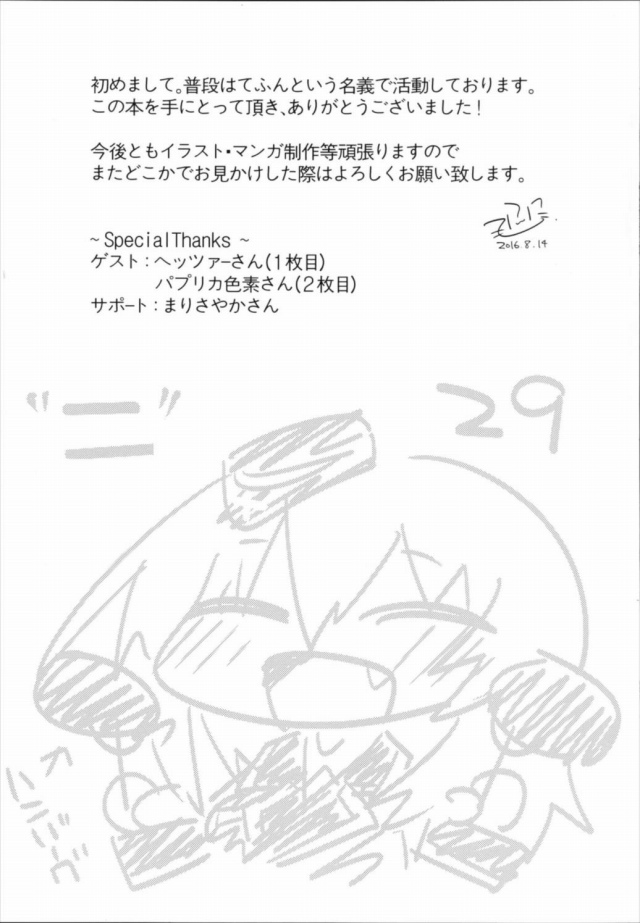 初めまして。普段はてふんという名義で活動しております。
この本を手にとって頂き、ありがとうございました！
今後ともイラスト・マンガ制作等頑張りますので
またどこかでお見かけした際はよろしくお願い致します。
2016.8.14
~ SpecialThanks ~
ゲスト：ヘッツァーさん（１枚目）
パプリカ色素さん（２枚目）
サポート：まりさやかさん
"二" 29